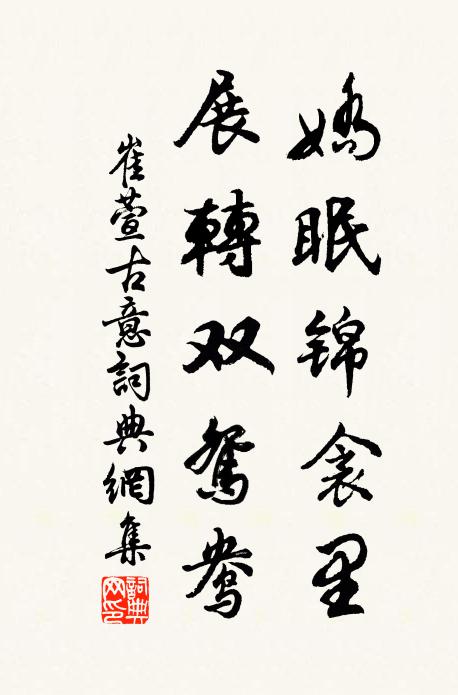 嬌眠锦衾里
展轉双鴛鴦
崔萱古意詞典網集
詞典网印